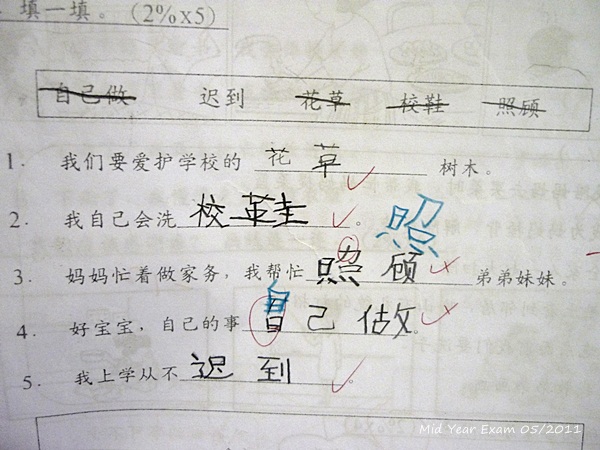 填一填。(2%x5)
自己做 迟到 花草 校鞋 照顾
1. 我们要爱护学校的 花草 树木。
2. 我自己会洗 校鞋 。 照
3. 妈妈忙着做家务，我帮忙 照顾 弟弟妹妹。
4. 好宝宝，自己的事 自己做 。
5. 我上学从不 迟到 。
Mid Year Exam 05/2011